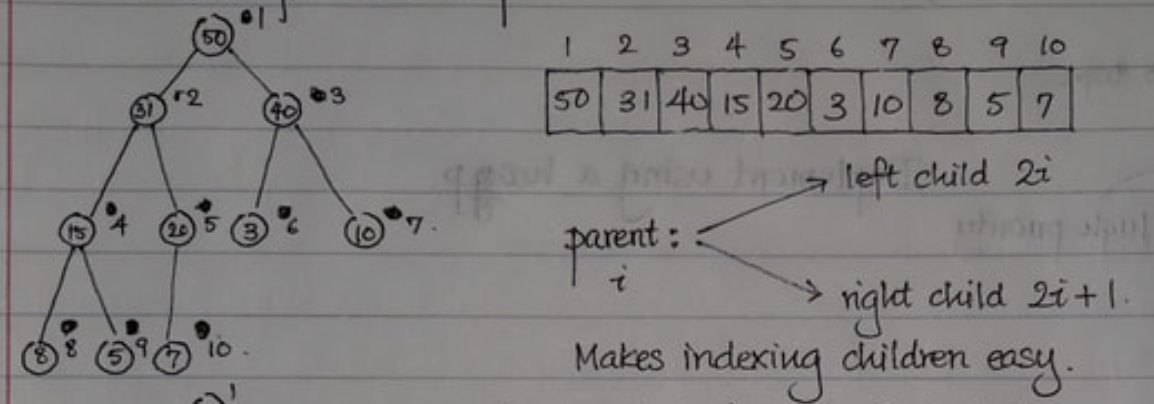 50 1
31 2 40 3
15 4 20 5 3 6 10 7.
8 8 5 9 7 10.
1 2 3 4 5 6 7 8 9 10
50 31 40 15 20 3 10 8 5 7
left child 2i
parent :
i
right child 2i+1.
Makes indexing children easy.